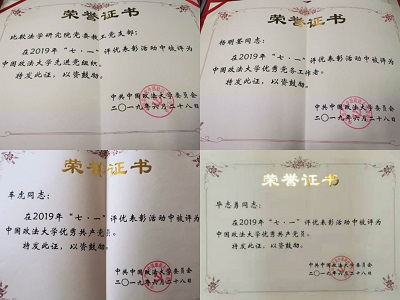 荣誉证书
比较法学研究院党委教工党支部:
在2019年“七·一”评优表彰活动中被评为
中国政法大学先进党组织。
特发此证,以资鼓励。
中共中国政法大学委员会
二〇一九年六月二十八日
荣誉证书
同志:
在2019年“七·一”评优表彰活动中被评为
中国政法大学优秀党务工作者。
特发此证,以资鼓励。
中共中国政法大学委员会
二〇一九年六月二十八日
荣誉证书
车虎同志:
在2019年“七·一”评优表彰活动中被评为
中国政法大学优秀共产党员。
特发此证,以资鼓励。
中共中国政法大学委员会
二〇一九年六月二十八日
荣誉证书
毕志勇同志:
在2019年“七·一”评优表彰活动中被评为
中国政法大学优秀共产党员。
特发此证,以资鼓励。
中共中国政法大学委员会
二〇一九年六月二十八日